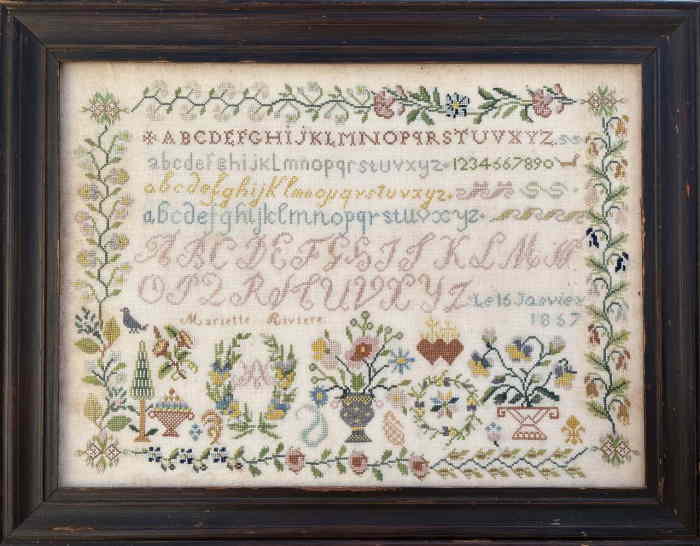 ABCDEFGHIJKLMNOPQRSTUVXYZ.
abcdefghijklmnopqrstuvxyz. 1234567890
abcdefghijklmnopqrstuvxyz.
abcdefghijklmnopqrstuvxyz.
ABCDEFGHIJKLMN
OPQRSTUVXYZ Le 15 Janvier
Mariette Riviere. 1867